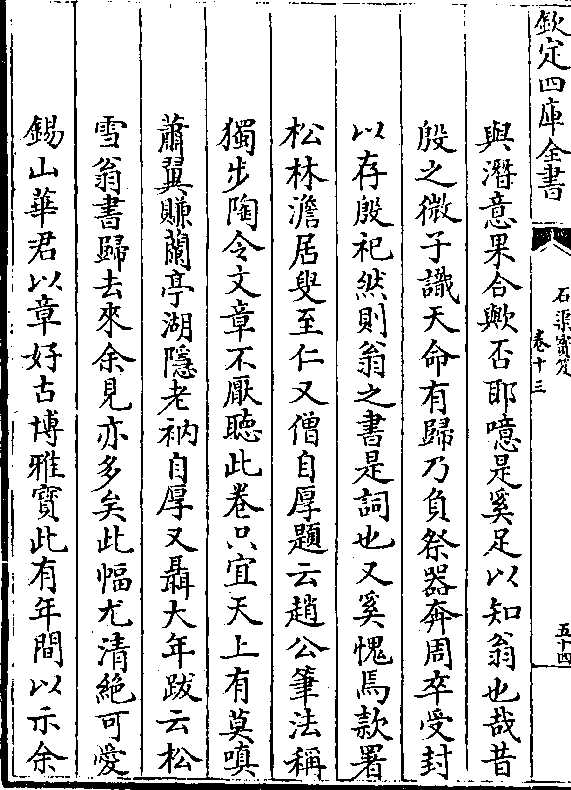 欽定四庫全書
石渠寳笈
卷十三
五十四
與潛意果合歟否耶噫是奚足以知翁也哉昔
殷之微子識天命有歸乃負祭器奔周卒受封
以存殷祀然則翁之書是詞也又奚愧焉款署
松林澹居叟至仁又僧自厚題云趙公筆法稱
獨步陶令文章不厭聴此卷只宜天上有莫嗔
蕭翼賺蘭亭湖隱老衲自厚又聶大年跋云松
雪翁書歸去來余見亦多矣此幅尤清絶可愛
錫山華君以章好古博雅寳此有年間以示余